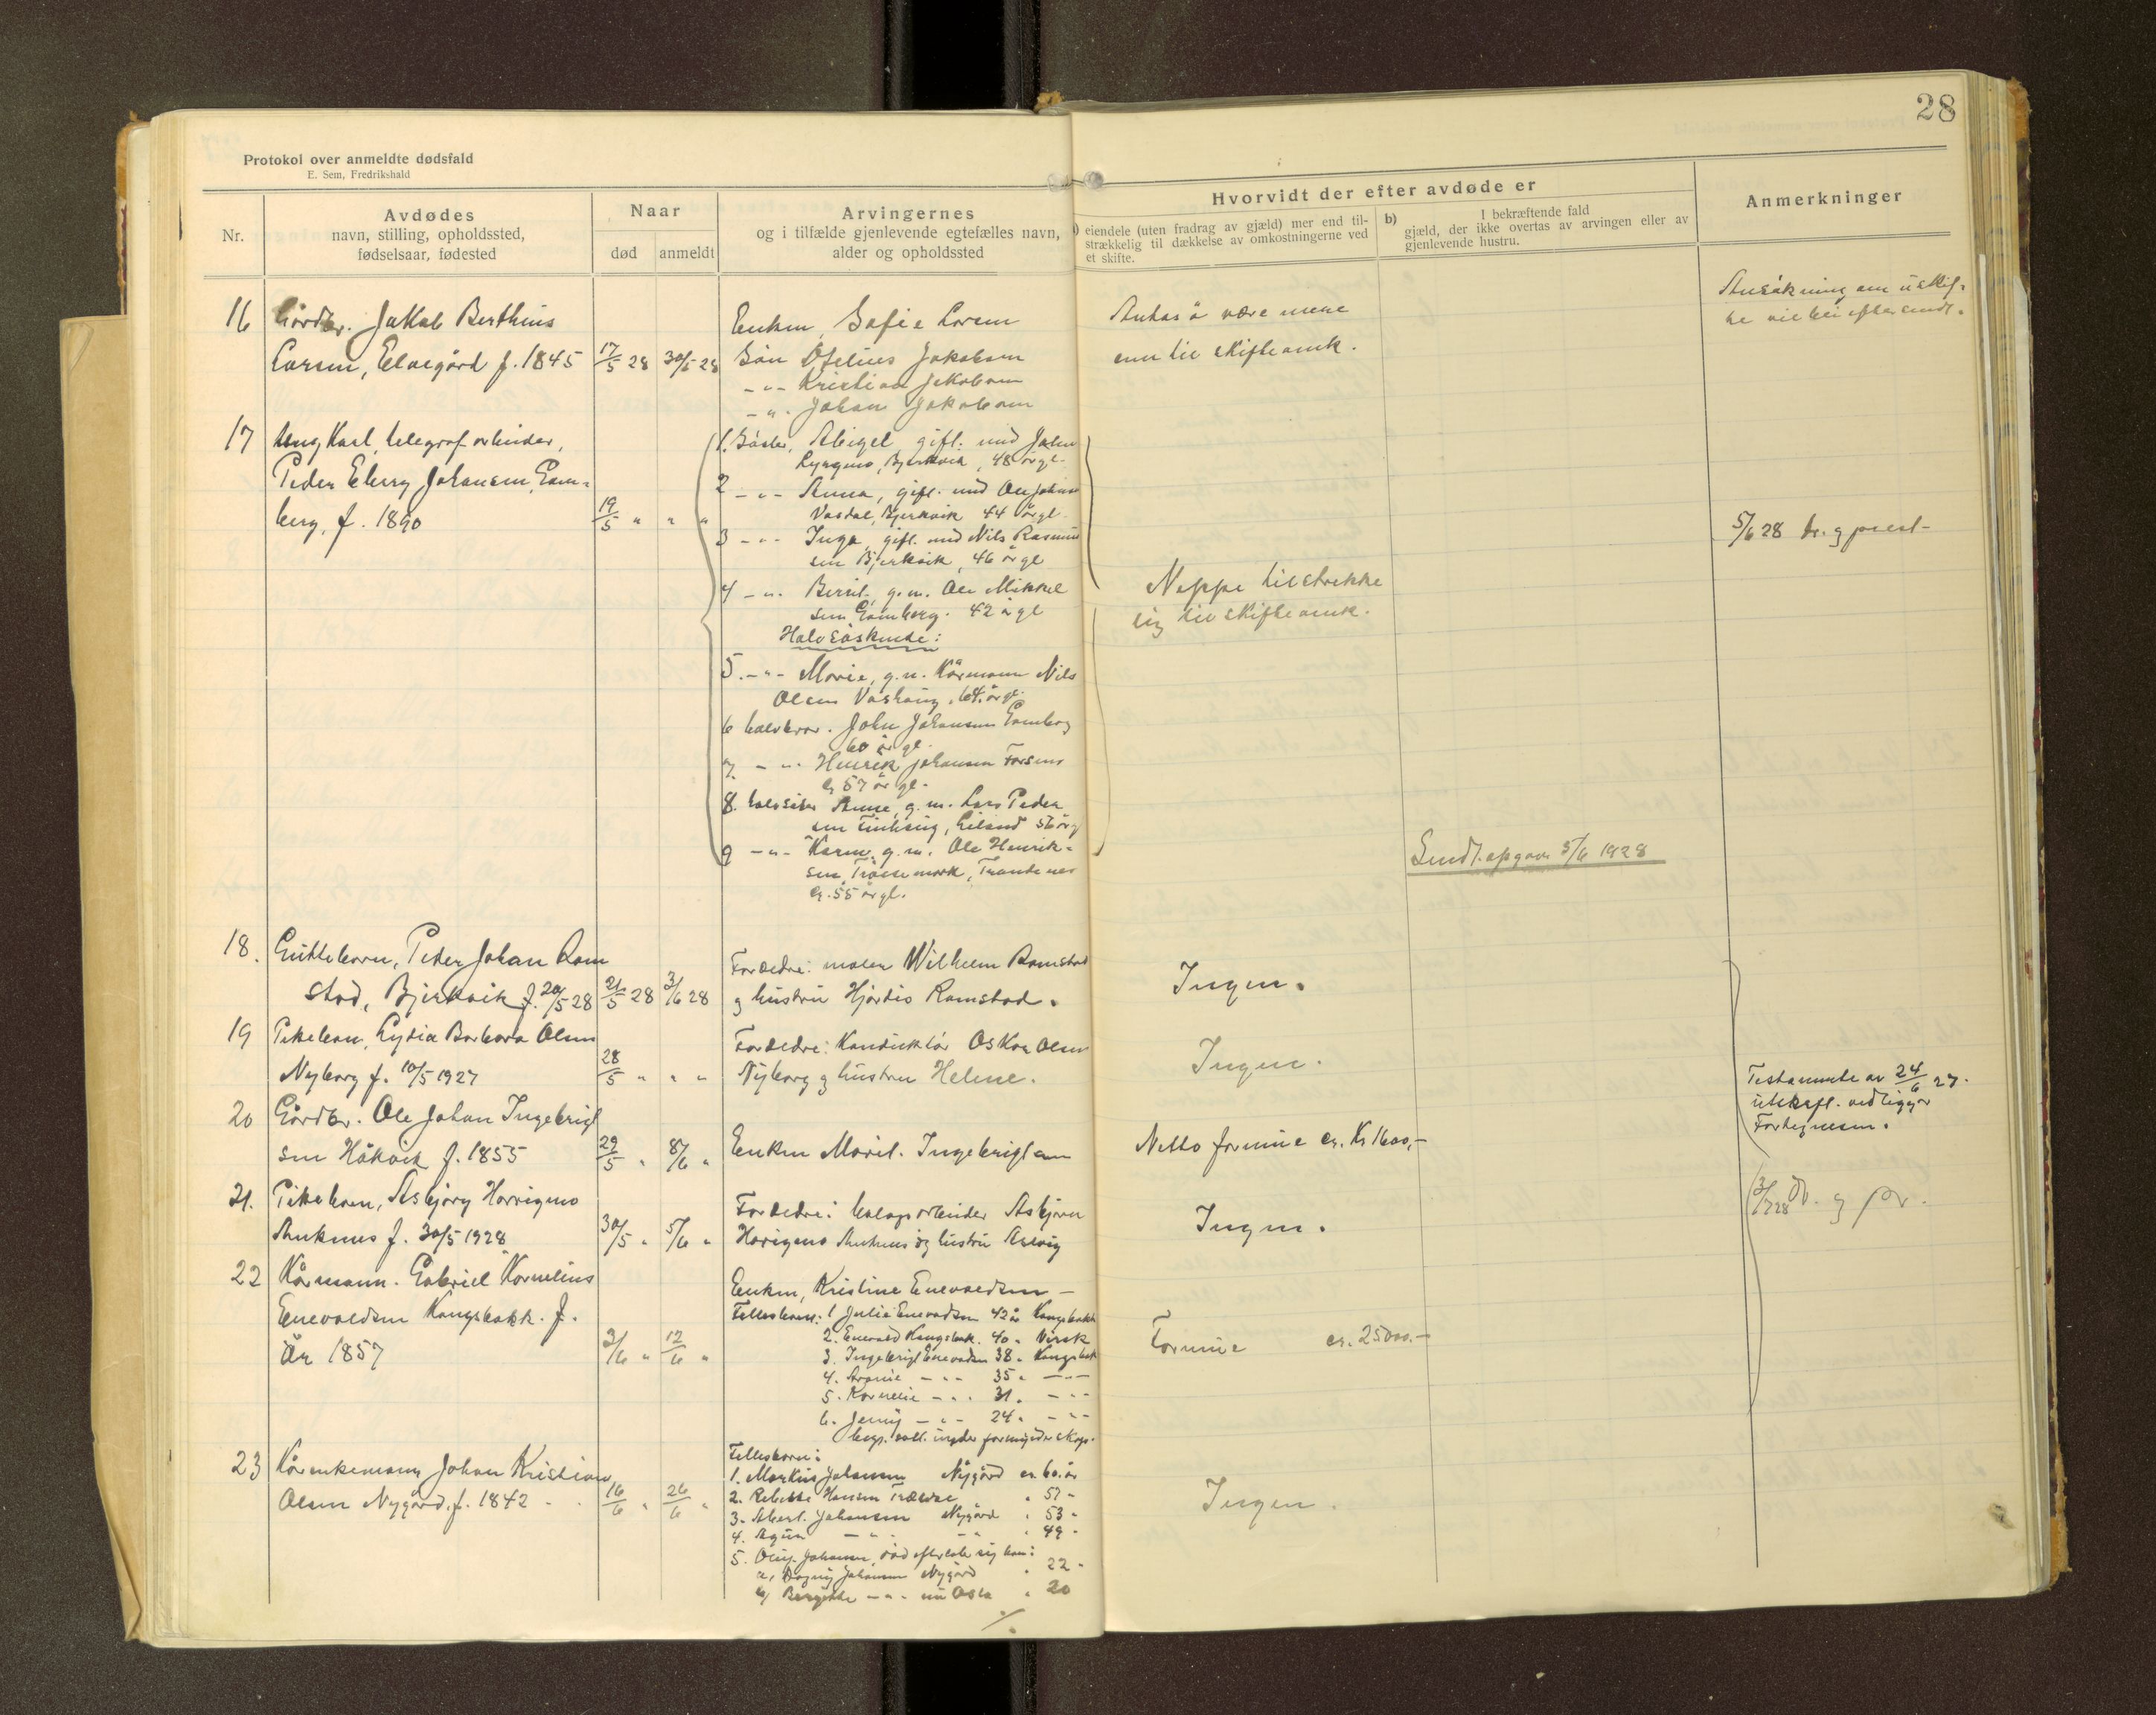 28
Protokol over anmeldte dødsfald
E. Sem, Fredrikshald
Nr.
Avdødes
navn, stilling, opholdssted,
fødselsaar, fødested
Naar
død
anmeldt
Arvingernes
og i tilfælde gjenlevende egtefælles navn,
alder og opholdssted
Hvorvidt der efter avdøde er
eiendele (uten fradrag av gjæld) mer end til-
strækkelig til dækkelse av omkostningerne ved
et skifte.
b)
I bekræftende fald
gjæld, der ikke overtas av arvingen eller av
gjenlevende hustru.
Anmerkninger
16
Gårdbr. Jakob Berthius
Larsen, Elvegård f. 1845
17/5 28
30/5 28
Enken, Sofie Larsen
Søn Ofelius Jakobsen
-"- Kristian Jakobsen
-"- Johan Jakobsen
Antas å være mere
enn til skifteomk.
Ansøkning om uskif-
te vil bli eftersendt.
17
Ung Karl, telegrafarbeider,
Peder Elberg Johansen, Gam-
berg, f. 1890
19/5 " " "
1. Søster, Abigel, gift. med John
Lyngmo, Bjerkvik, 48 år gl.
2 -"- Anna, gift. med Ole Johans
Vasdal, Bjerkvik 44 år gl.
3 -"- Inga, gift. med Nils Rasmus
sen Bjerkvik, 46 år gl
4 -"- Berit, g.m. Ole Mikkel
sen Gamberg. 42 år gl
Halvsøskende:
5. -"- Marie, g.m. Kårmann Nils
Olsen Vashaug, 64 år gl.
6 halvbror. John Johansen Gamberg
60 år gl.
7. -"- Henrik Johansen Forsmo
57 år gl.
8. halvsøster Anne, g.m. Lars Peder
sen
9 -"- Karen, g.m. Ole Henrik-
sen, Trøssemark, Trondenes
55 år gl.
Neppe tilstrekke
lig til skifteomk.
Sendt. opgave 5/6 1928
5/6 28 dr. og prest
18.
Guttebarn, Peder Johan Ram
stad, Bjerkvik f. 20/5 28
21/5 28
3/6 28
Foreldre: maler Wilhelm Ramstad
og hustru Hjørdis Ramstad.
Ingen.
19
Pikebarn, Lydia Barbara Olsen
Nyborg f. 10/5 1927
28/5 " " "
Foreldre: Konduktør Oskar Olsen
Nyborg og hustru Helene.
Ingen.
20
Gårdbr. Ole Johan Ingebrigt
sen Håkvik f. 1855
29/5 "
8/6 "
Enken Marit. Ingebrigtsen
Netto formue ca. Kr 1600,-
Testamente av 24/6 27.
utskrft. vedligger
Fortegnesen.
21.
Pikebarn, Asbjørg Horrigmo
Ankenes f. 30/5 1928
30/5 "
5/6 "
Foreldre: malaparbeider Asbjørn
Horigmo Ankenes og hustru Aslaug
Ingen.
3/7 28 dr. og pr.
22
Kårmann. Gabriel Kornelius
Enevoldsen Kongsbakk. f.
år 1857
3/6 "
12/6 "
Enken, Kristine Enevoldsen –
Fellesbarn: 1 Julie Enevoldsen 42 år Kongsbakk
2. Enevold Kongsbak. 40 "
3. Ingebrigt Enevoldsen 38 " Kongsbak
4. -"- 35 " -"-
5. Kornelie -"- 31 " -"-
6. Jenny -"- 24 " -"-
Formue ca. 25000.-
23
Kårenkemann, Johan Kristian
Olsen Nygård, f. 1842
16/6 "
26/6 "
Fellesbarn:
1. Markus Johansen Nygård ca. 60 år
2. Rebekka Hansen " 57 "
3. Albert. Johansen Nygård " 53 "
4. -"- -"- " 49 "
5. Johansen, død efterlate sig barn:
a, Dagny Johansen Nygård " 22 "
b, -"- nu Oslo " 20
Ingen.